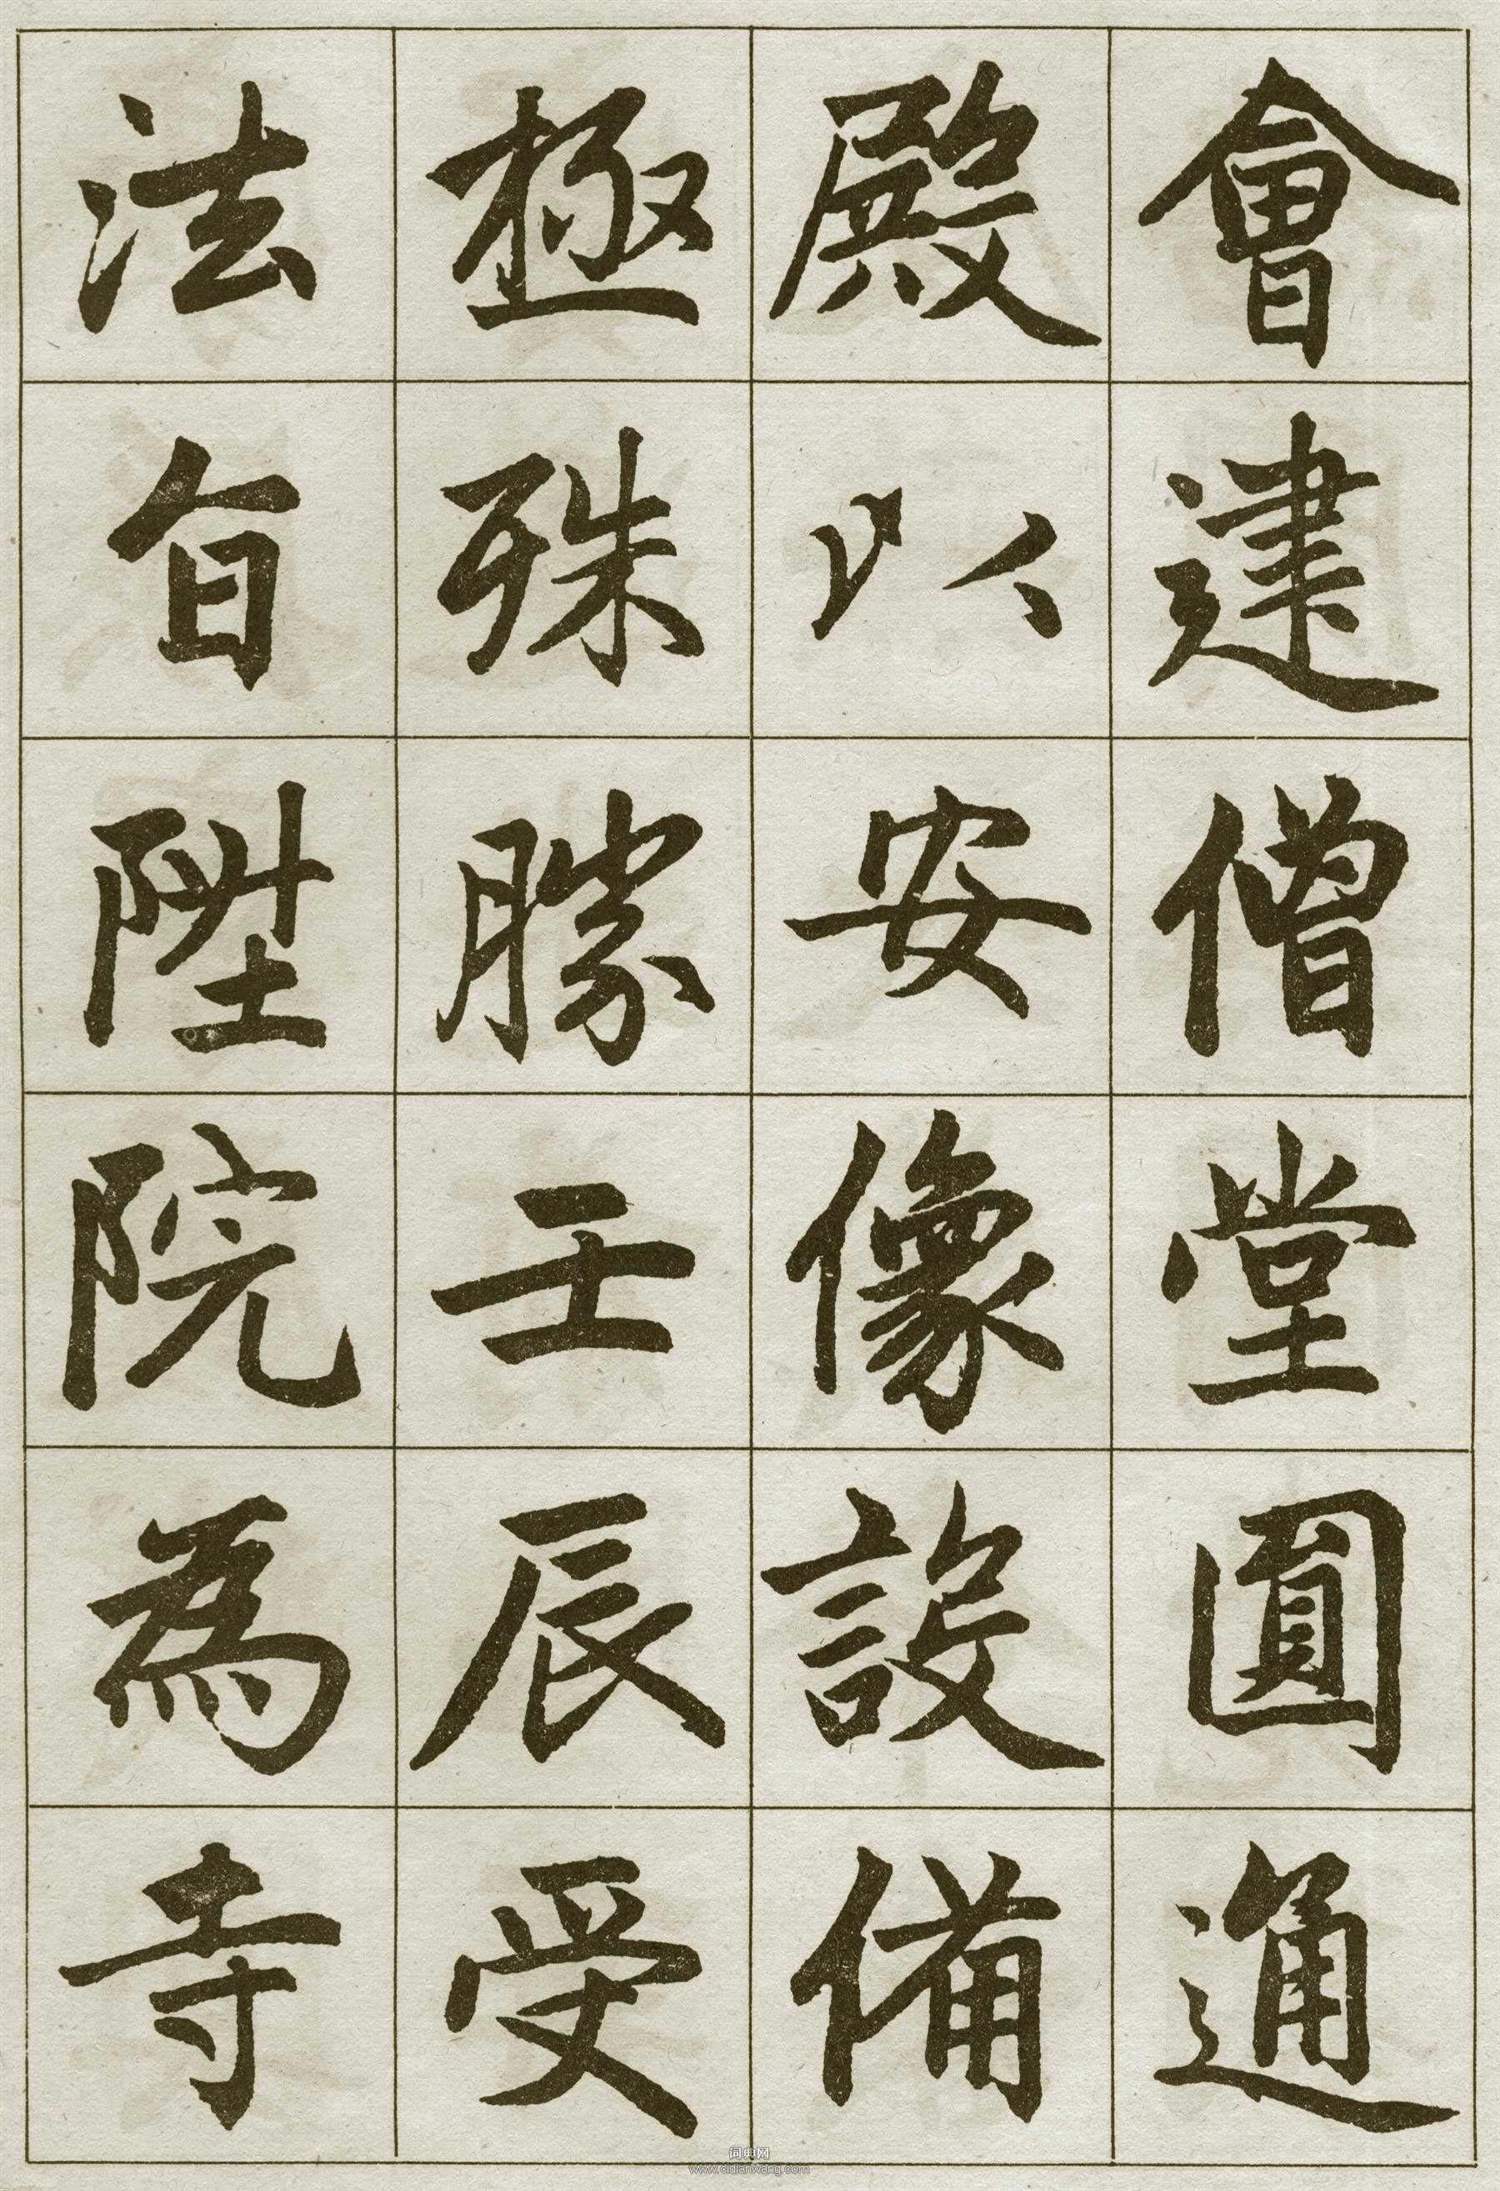 會建僧堂圓通
殿以安像設備
極殊勝壬辰受
法旨陞院為寺
词典网
www.cidianwang.com